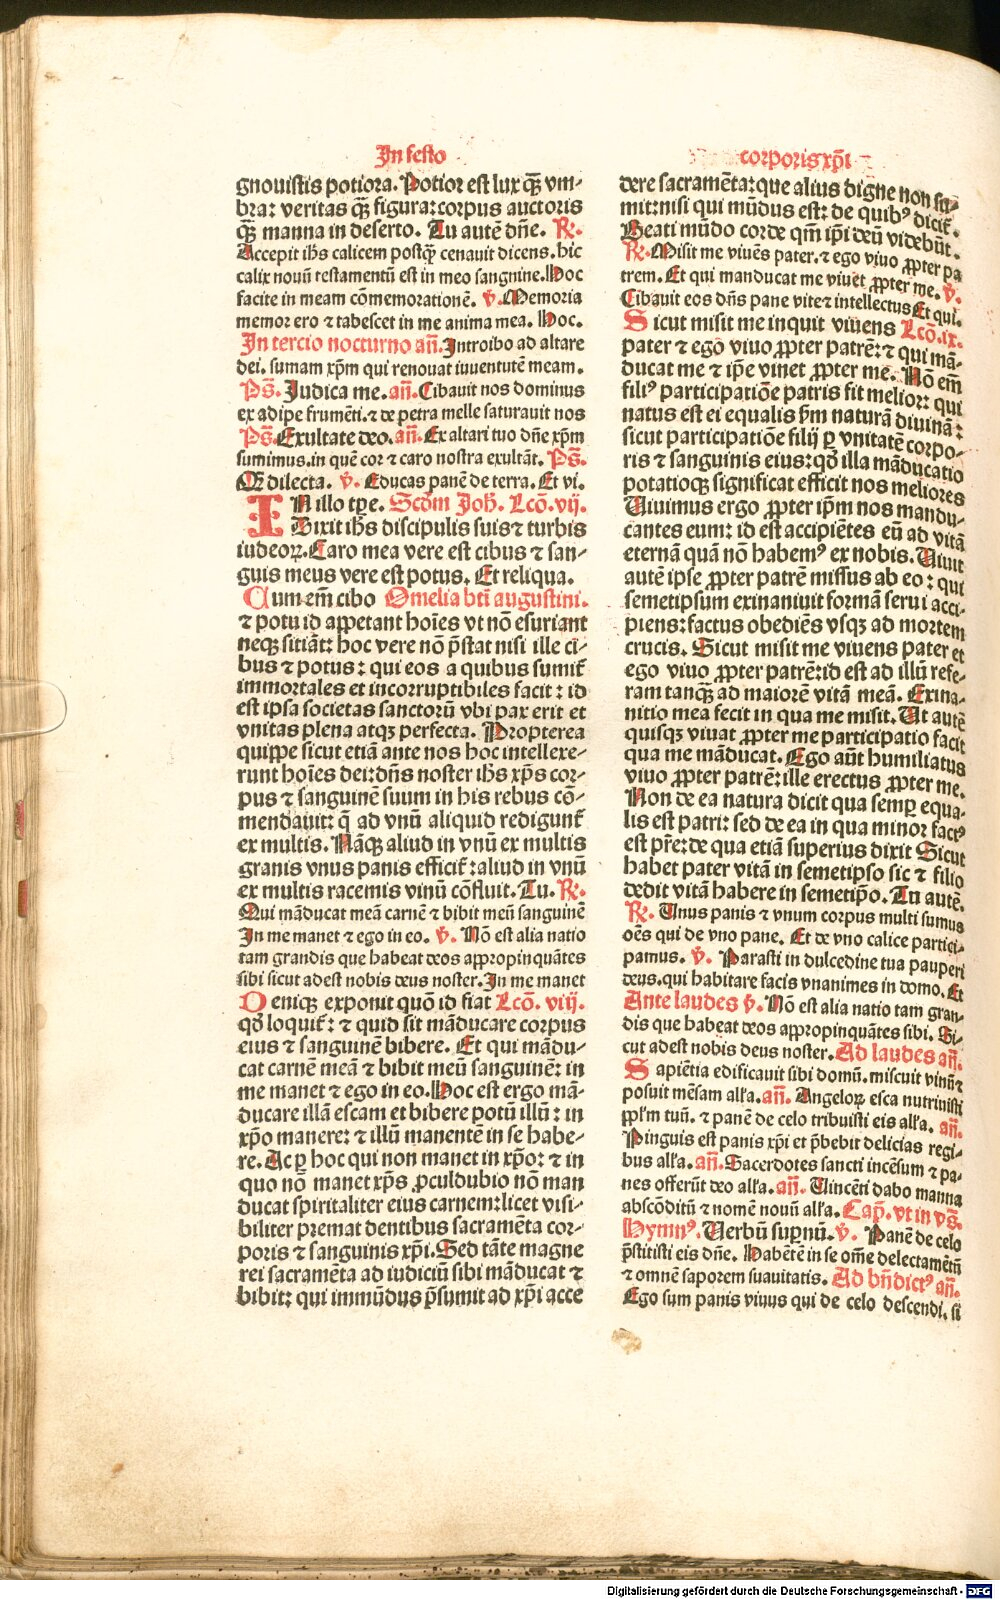 In festo
gnouistis potiora. Potior est lux qꝫ vm-
bra: veritas qꝫ figura: corpus auctoris
qꝫ manna in deserto. Tu autē dn̄e. ℟.
Accepit ihs calicem postqꝫ cenauit dicens. hic
calix nouū testamentū est in meo sangnine. Hoc
facite in meam cōmemorationē. ℣. Memoria
memor ero ⁊ tabescet in me anima mea. Hoc.
In tercio nocturno an̄. Introibo ad altare
dei. sumam xp̄m qui renouat iuuentutē meam.
Ps̄. Iudica me. an̄. Cibauit nos dominus
ex adipe frumēti. ⁊ de petra melle saturauit nos
Ps̄. Exultate deo. an̄. Ex altari tuo dn̄e xp̄m
sumimus. in quē cor ⁊ caro nostra exultāt. Ps̄.
Qꝫ dilecta. ℣. Educas panē de terra. Et vi.
IN illo tꝑe. Scd̄m Joh̄. Lcō. vij.
Dixit ihs discipulis suis ⁊ turbis
iudeoꝝ. Caro mea vere est cibus ⁊ san-
guis meus vere est potus. Et reliqua.
Cum em̄ cibo Omelia bt̄i augustini.
⁊ potu id appetant hoīes vt nō esuriant
neqꝫ sitiāt: hoc vere nō p̄stat nisi ille ci-
bus ⁊ potus: qui eos a quibus sumit̄
immortales et incorruptibiles facit: id
est ipsa societas sanctorū vbi pax erit et
vnitas plena atqꝫ perfecta. Propterea
quippe sicut etiā ante nos hoc intellexe-
runt hoīes dei: dn̄s noster ihs xp̄s cor-
pus ⁊ sanguinē suum in his rebus cō-
mendauit: q̄ ad vnū aliquid redigunt̄
ex multis. Nāqꝫ aliud in vnū ex multis
granis vnus panis efficit̄: aliud in vnū
ex multis racemis vinū cōfluit. Tu. ℟.
Qui māducat meā carnē ⁊ bibit meū sanguinē
In me manet ⁊ ego in eo. ℣. Nō est alia natio
tam grandis que habeat deos appropinquātes
sibi sicut adest nobis deus noster. In me manet
Deniqꝫ exponit quō id fiat Lcō. viij.
qd̄ loquit̄: ⁊ quid sit māducare corpus
eius ⁊ sanguinē bibere. Et qui mādu-
cat carnē meā ⁊ bibit meū sanguinē: in
me manet ⁊ ego in eo. Hoc est ergo mā-
ducare illā escam et bibere potū illū: in
xp̄o manere: ⁊ illū manentē in se habe-
re. Ac ꝑ hoc qui non manet in xp̄o: ⁊ in
quo nō manet xp̄s ꝓculdubio nō man
ducat spiritaliter eius carnem: licet visi-
biliter premat dentibus sacramēta cor-
poris ⁊ sanguinis xp̄i. Sed tāte magne
rei sacramēta ad iudiciū sibi māducat ⁊
bibit: qui immūdus p̄sumit ad xp̄i acce
corporis xp̄i
dere sacramēta: que alius digne non su-
mit: nisi qui mūdus est: de quibꝰ dicit̄.
Beati mūdo corde qm̄ ip̄i deū videbūt.
℟. Misit me viuēs pater. ⁊ ego viuo ꝓpter pa
trem. Et qui manducat me viuet ꝓpter me. ℣.
Cibauit eos dn̄s pane vite ⁊ intellectus Et qui.
Sicut misit me inquit viuens Lcō. ix.
pater ⁊ ego viuo ꝓpter patrē: ⁊ qui mā-
ducat me ⁊ ip̄e viuet ꝓpter me. Nō em̄
filiꝰ participatiōe patris fit melior: qui
natus est ei equalis s̄m naturā diuinā:
sicut participatiōe filij ꝑ vnitatē corpo-
ris ⁊ sanguinis eius: qd̄ illa māducatio
potatioqꝫ significat efficit nos meliores
Viuimus ergo ꝓpter ip̄m nos mandu-
cantes eum: id est accipiētes eū ad vitā
eternā quā nō habemꝰ ex nobis. Viuit
autē ipse ꝓpter patrē missus ab eo: qui
semetipsum exinaniuit formā serui acci-
piens: factus obediēs vsqꝫ ad mortem
crucis. Sicut misit me viuens pater et
ego viuo ꝓpter patrē: id est ad illū refe-
ram tanqꝫ ad maiorē vitā meā. Exina-
nitio mea fecit in qua me misit. Ut autē
quisqꝫ viuat ꝓpter me participatio facit
qua me māducat. Ego aūt humiliatus
viuo ꝓpter patrē: ille erectus ꝓpter me.
Non de ea natura dicit qua semꝑ equa-
lis est patri: sed de ea in qua minor factꝰ
est pr̄e: de qua etiā superius dixit Sicut
habet pater vitā in semetipso sic ⁊ filio
dedit vitā habere in semetip̄o. Tu autē.
℟. Unus panis ⁊ vnum corpus multi sumus
oēs qui de vno pane. Et de vno calice partici-
pamus. ℣. Parasti in dulcedine tua pauperi
deus. qui habitare facis vnanimes in domo. Et
Ante laudes ℣. Nō est alia natio tam gran-
dis que habeat deos appropinquātes sibi. Si-
cut adest nobis deus noster. Ad laudes an̄.
Sapiētia edificauit sibi domū. miscuit vinū ⁊
posuit mēsam alľa. an̄. Angeloꝝ esca nutriuisti
ppľm tuū. ⁊ panē de celo tribuisti eis alľa. an̄.
Pinguis est panis xp̄i et p̄bebit delicias regi-
bus alľa. an̄. Sacerdotes sancti incēsum ⁊ pa-
nes offerūt deo alľa. an̄. Vincēti dabo manna
abscōditū ⁊ nomē nouū alľa. Cap̄. vt in vs̄.
Hymnꝰ. Verbū suꝑnū. ℣. Panē de celo
p̄stitisti eis dn̄e. Habētē in se om̄e delectamētū
⁊ omnē saporem suauitatis. Ad bn̄dictꝰ an̄.
Ego sum panis viuus qui de celo descendi. si
Digitalisierung gefördert durch die Deutsche Forschungsgemeinschaft - DFG